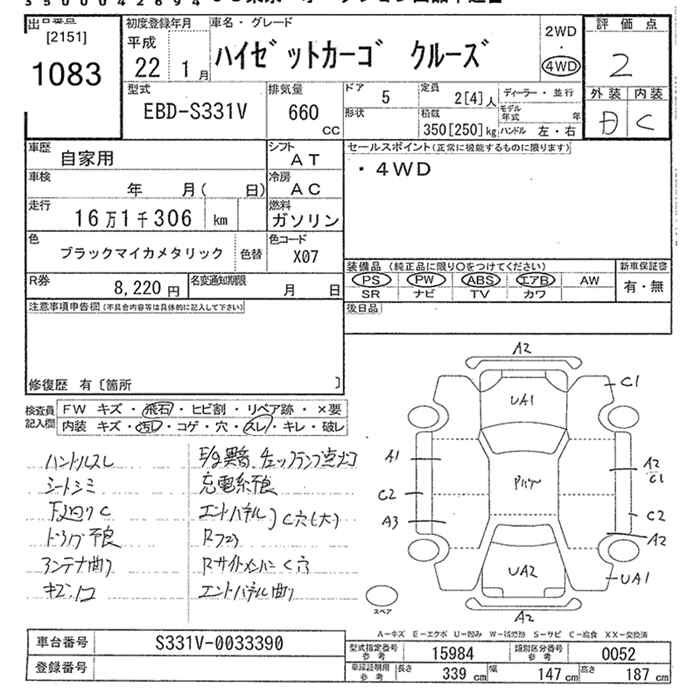 出品番号
[2151]
1083
初度登録年月
平成
22 1月
車名・グレード
ハイゼットカーゴ クルーズ
2WD
・
4WD
評価点
2
外装 内装
C
型式
EBD-S331V
排気量
660
CC
ドア
5
形状
定員
2[4]人
積載
350[250]kg
ディーラー・並行
モデル年式 年
ハンドル 左・右
車歴
自家用
シフト
AT
車検
年 月( 日)
冷房
AC
走行
16万1千306 km
燃料
ガソリン
色
ブラックマイカメタリック
色替
色コード
X07
R券
8,220円
名変通知期限
月 日
セールスポイント(正常に機能するものに限ります)
・4WD
装備品 (純正品に限り○をつけてください)
PS PW ABS エアB AW
SR ナビ TV カワ
新車保証書
有・無
後日品
注意事項申告欄(不具合内容等は具体的に記入して下さい)
修復歴 有〔箇所 〕
検査員記入欄
FW キズ・飛石・ヒビ割・リペア跡・×要
内装 キズ・汚レ・コゲ・穴・スレ・キレ・破レ
ハンドルスレ
シートシミ
下廻りC
ドラブ不良
アンテナ曲り
E/g異音、チェックランプ点灯
充電系不良
エンドパネル C穴(大)
Rフロア
RサイドメンバーC穴
エンドパネル曲り
A2
UA1
C1
A1
C2
A3
A2
C1
C2
A2
UA2
UA1
A2
スペア
A-キズ E-エクボ U-凹み W-補修跡 S-サビ C-腐食 XX-交換済
車台番号
S331V-0033390
登録番号
型式指定番号
参考
15984
類別区分番号
参考
0052
車庫証明用
参考
長さ
339 cm
幅
147 cm
高さ
187 cm